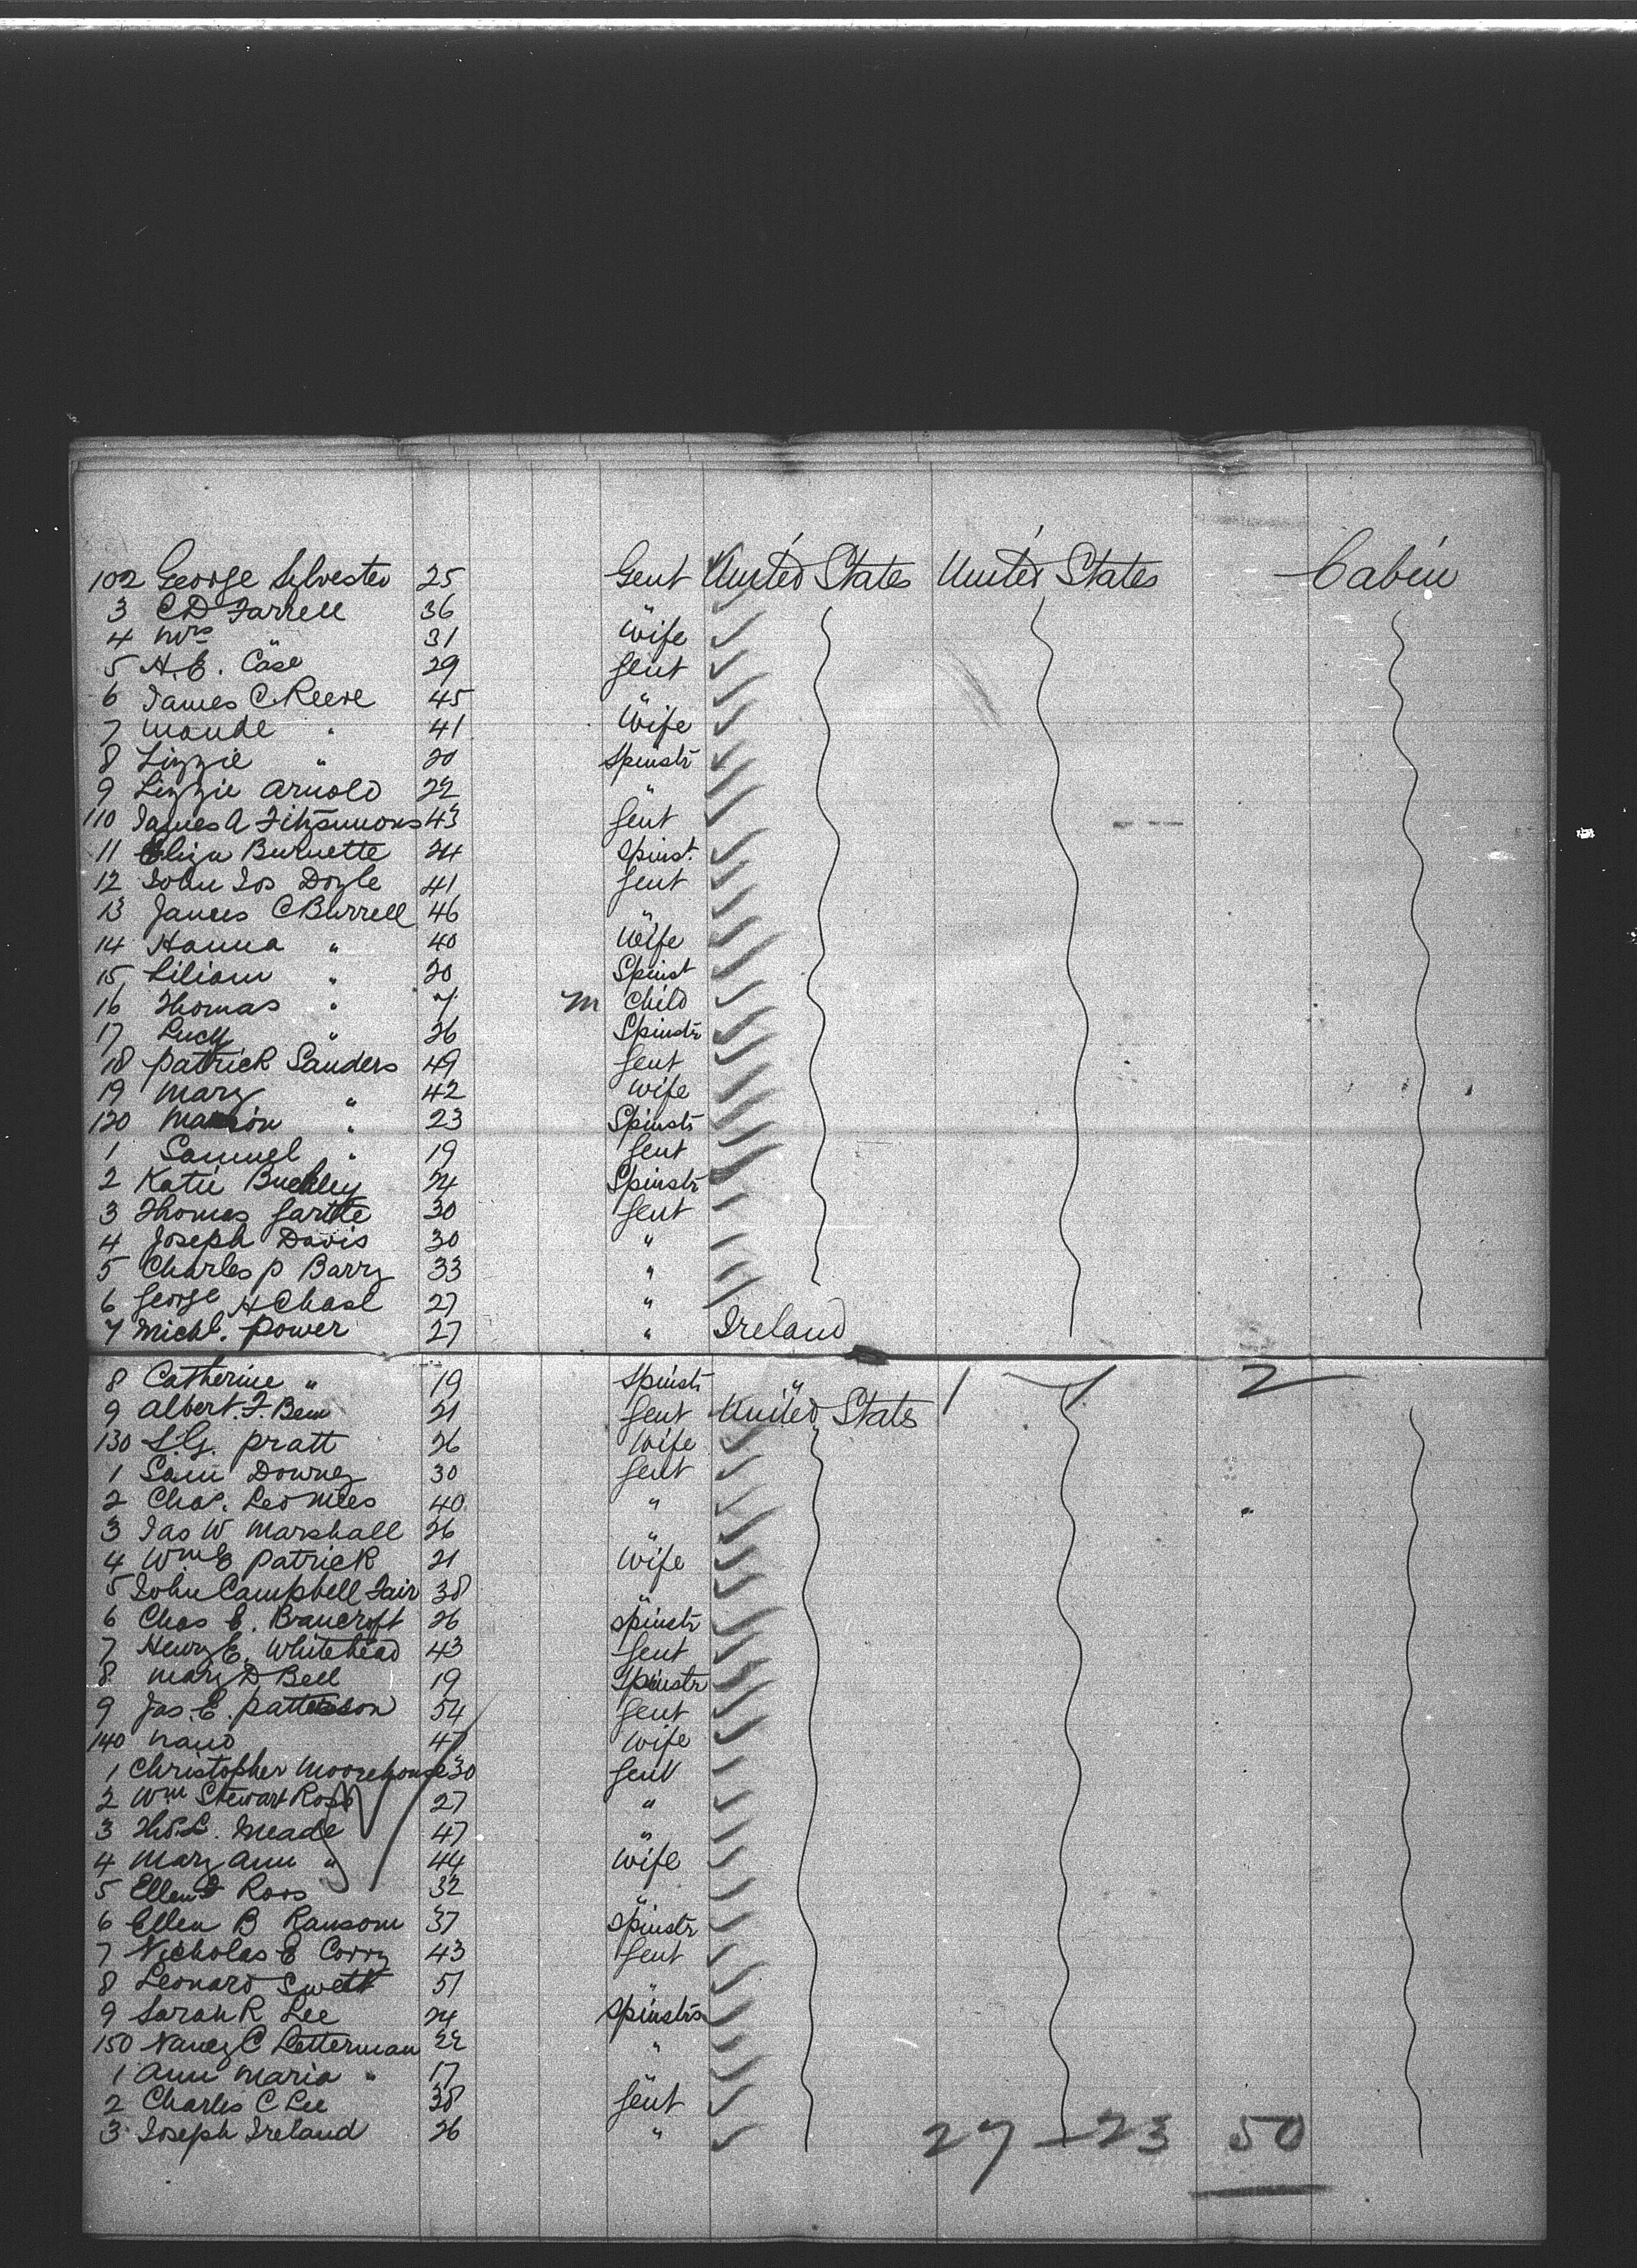 102 George Sylvester 25 Gent United States United States Cabin
3 C D Farrell 36 "
4 Mrs " 31 Wife
5 H. E. Case 29 Gent
6 James C. Reeve 45 "
7 Maude " 41 Wife
8 Lizzie " 20 Spinstr
9 Lizzie Arnold 22 "
110 James A Fitzsimmons 43 Gent
11 Eliza Burnette 24 Spinst.
12 John Jos Doyle 41 Gent
13 James C Burrell 46 "
14 Hanna " 40 Wife
15 Liliam " 20 Spinst
16 Thomas " 7 m Child
17 Lucy " 26 Spinstr
18 Patrick Sanders 49 Gent
19 Mary " 42 Wife
120 Marion " 23 Spinstr
1 Samuel " 19 Gent
2 Katie Buckley 24 Spinstr
3 Thomas 30 Gent
4 Joseph Davis 30 "
5 Charles P Barry 33 "
6 George H Chase 27 "
7 Michl. Power 27 " Ireland
8 Catherine " 19 Spinstr " 1 1 2
9 Albert. F. Bem 21 Gent United States
130 L. G. Pratt 26 Wife
1 Sam Downey 30 Gent
2 Chas. Leo 40 "
3 Jas W Marshall 26 "
4 Wm E Patrick 21 Wife
5 John Campbell Fair 38 "
6 Chas E. Bancroft 26 Spinstr
7 Henry E. Whitehead 43 Gent
8 Mary D Bell 19 Spinstr
9 Jas. E. Patterson 54 Gent
140 47 Wife
1 Christopher Moorehouse 30 Gent
2 Wm Stewart Ross 27 "
3 Thos. L. Meade 47 "
4 Mary Ann " 44 Wife
5 Ellen F Roos 32 "
6 Ellen B Ransom 37 Spinstr
7 Nicholas E Corry 43 Gent
8 Leonard Swett 51 "
9 Sarah R Lee 24 Spinstrs
150 Nancy C Letterman 22 "
1 Ann Maria " 17
2 Charles C Lee 38 Gent
3 Joseph Ireland 26 " 27 - 23 50